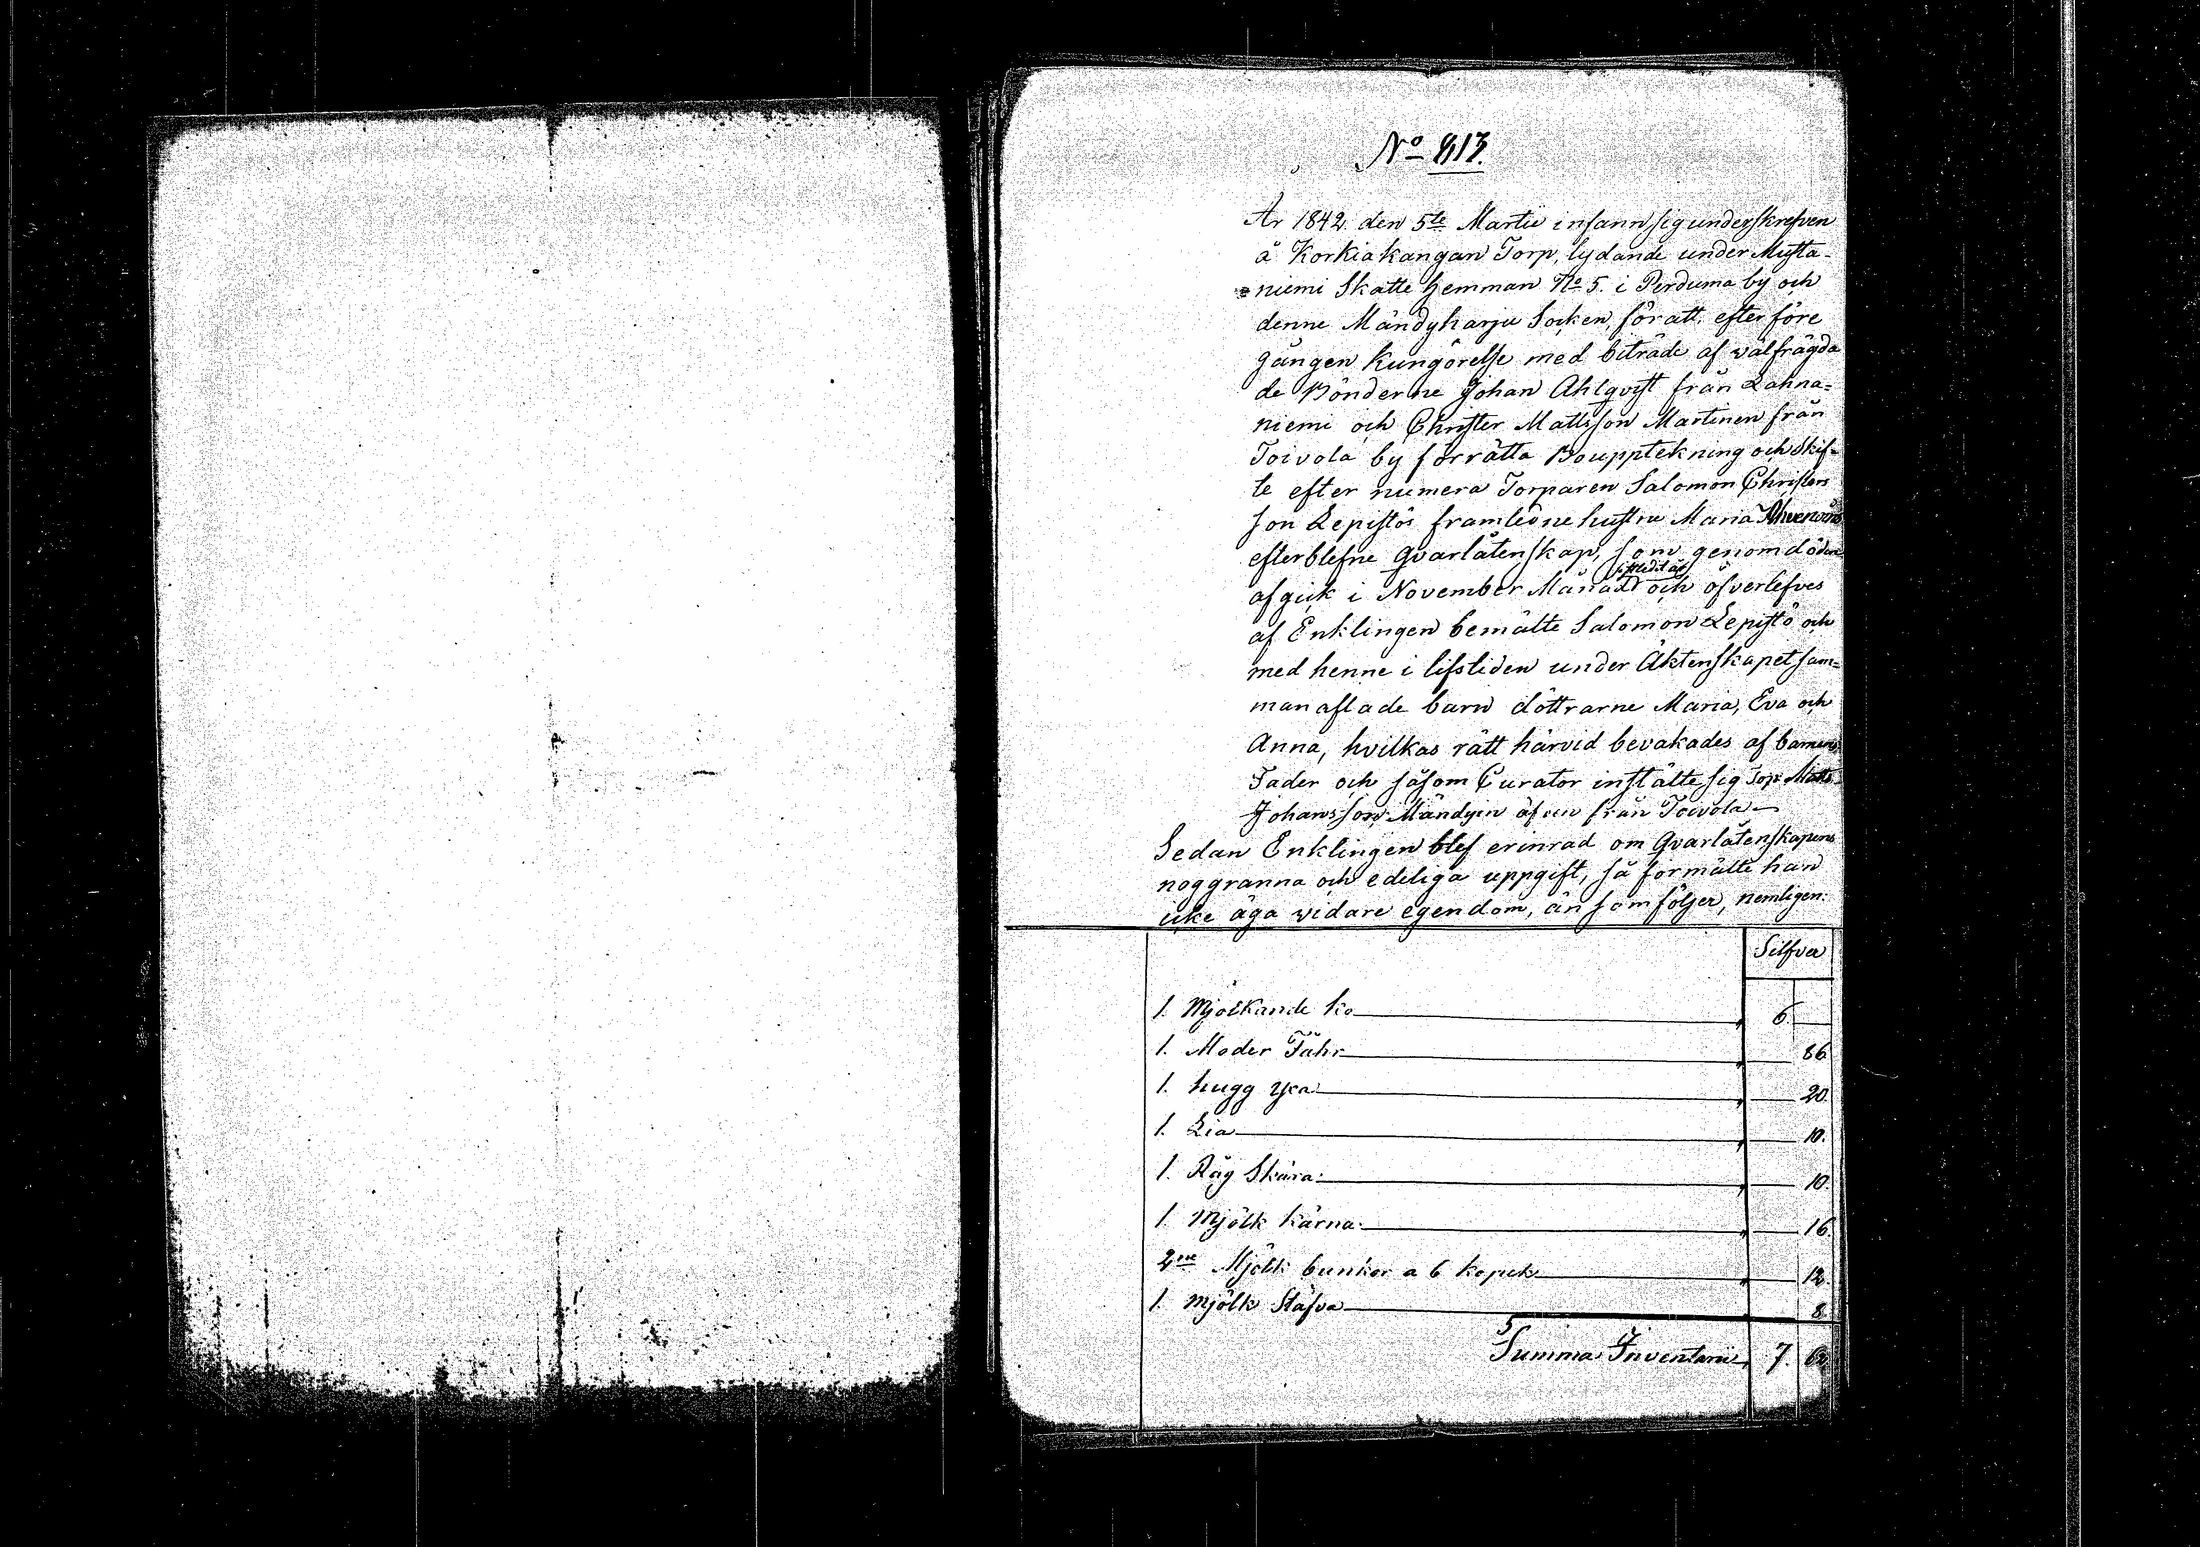 No 813.
År 1842. den 5te Martii infann sig underskrefven
å Korkiakangan Torp, lydande under Musta-
niemi Skatte hemman No 5. i Perduma by och
denne Mändyharju Socken, för att, efter före
gången Kungörelse med biträde af wälfrägda
de Bönderne Johan Ahlqvist från Lahna=
niemi och Christer Mattsson Martinen från
Toivola by förrätta Bouppteckning och Skif-
te efter numera Torparen Salomon Christers
son Lepistös framledne hustru Maria
efterblefne qvarlåtenskap, som genom döden
afgick i November Månad och öfverlefves
af Enklingen bemälte Salomon Lepistö och
med henne i lifstiden under Äktenskapet sam=
manaflade barn döttrarne Maria, Eva och
Anna, hvilkas rätt härvid bevakades af barnens
Fader och såsom Curator inställte sig Torp: Matts
Johansson Mändyin äfven från Toivola
Sedan Enklingen blef erinrad om Qvarlåtenskapens
noggranna och edeliga uppgift, så förmälte han
icke äga widare egendom, än som följer, nemligen:
Silfver
1. Mjölkande ko 6.
1. Moder Fåhr 86.
1. hugg yxa 20.
1. Lia 10.
1. Råg Skära 10.
1. Mjölk kärna 16.
2ne Mjölk bunkor a 6 kopek 12.
1. Mjölk Stäfva 8.
Summa Inventarii 7. 62